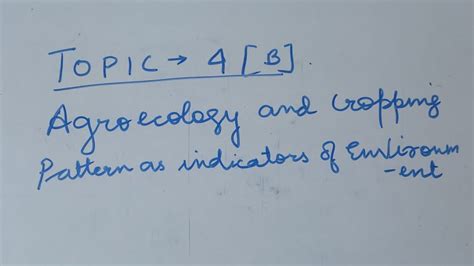 TOPIC → 4 [B]
Agroecology and cropping
Pattern as indicators of Environm
-ent